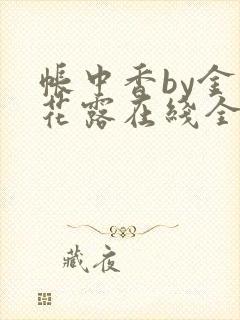 帐中香by金
花露在线全
藏夜